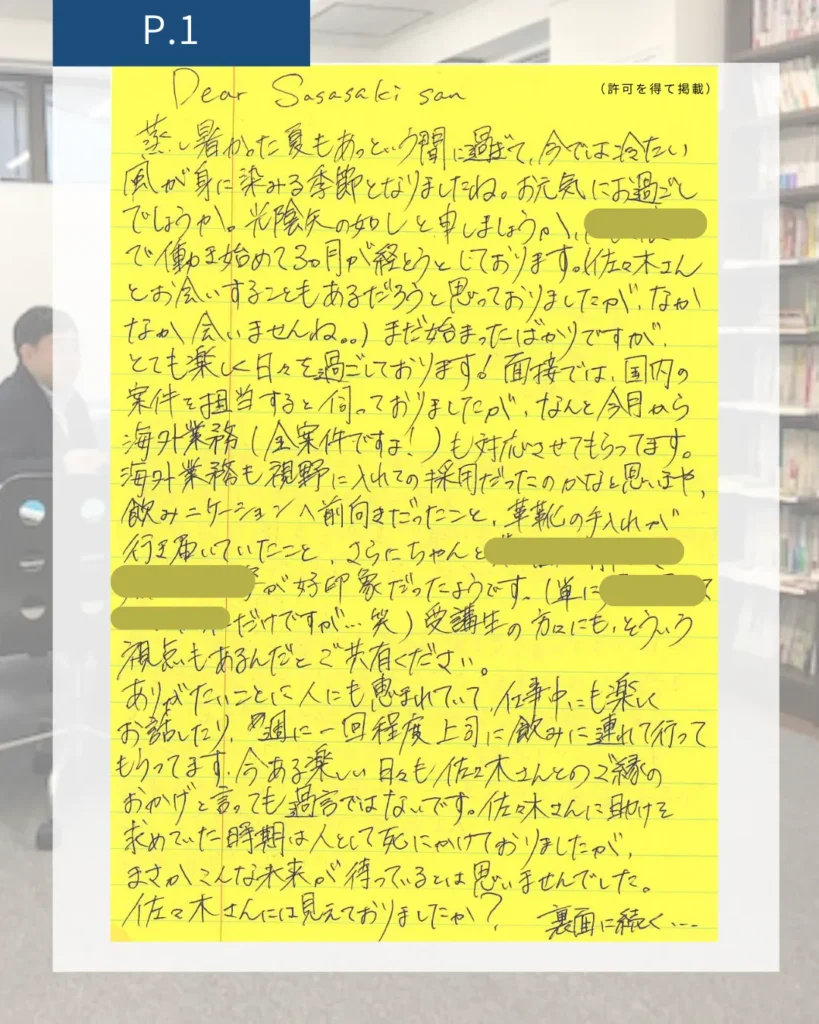 P.1
(許可を得て掲載)
Dear Sasasaki san
蒸し暑かった夏もあっという間に過ぎて、今では冷たい
風が身に染みる季節となりましたね。お元気にお過ごし
でしょうか。光陰矢の如しと申しましょうか、
で働き始めて3ヶ月が経とうとしております。(佐々木さん
とお会いすることもあるだろうと思っておりましたが、なか
なか会いませんね。。)まだ始まったばかりですが、
とても楽しく日々を過ごしております!面接では、国内の
案件を担当すると伺っておりましたが、なんと今月から
海外業務(全案件ですよ!)も対応させてもらってます。
海外業務も視野に入れての採用だったのかなと思いまや、
飲みニケーションへ前向きだったこと、革靴の手入れが
行き届いていたこと、さらにちゃんと
が好印象だったようです。(単に
だけですが…笑)受講生の方々にも、そういう
視点もあるんだとご共有ください。
ありがたいことに人にも恵まれていて、仕事中にも楽しく
お話したり、週に一回程度上司に飲みに連れて行って
もらってます。今ある楽しい日々も佐々木さんとのご縁の
おかげと言っても過言ではないです。佐々木さんに助けを
求めていた時期は人として死にかけておりましたが、
まさかこんな未来が待っているとは思いませんでした。
佐々木さんには見えておりましたか?
裏面に続く…